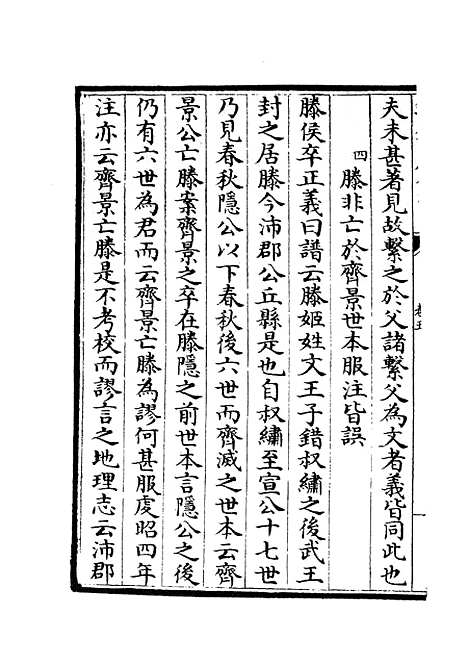 夫未甚著見故繫之於父諸繫父為文者義皆同此也
四 滕非亡於齊景世本服注皆誤
滕侯卒正義曰譜云滕姬姓文王子錯叔繡之後武王
封之居滕今沛郡公丘縣是也自叔繡至宣公十七世
乃見春秋隱公以下春秋後六世而齊滅之世本云齊
景公亡滕案齊景之卒在滕隱之前世本言隱公之後
仍有六世為君而云齊景亡滕為謬何甚服虔昭四年
注亦云齊景亡滕是不考校而謬言之地理志云沛郡
卷五